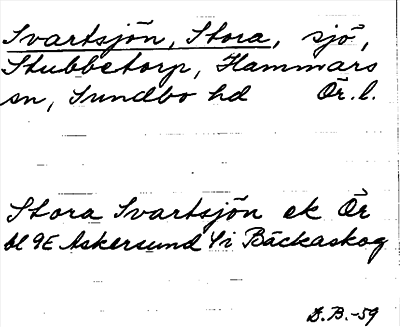 Svartsjön, Stora, sjö,
Stubbetorp, Hammars
sn, Sundbo hd Ör.l.
Stora Svartsjön ek Ör
bl 9E Askersund 4i Bäckaskog
D.B.-59